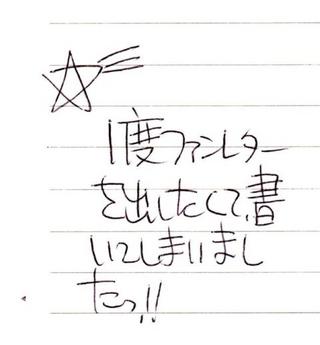 1度ファンレター
を出したくて、書
いてしまいまし
たっ!!